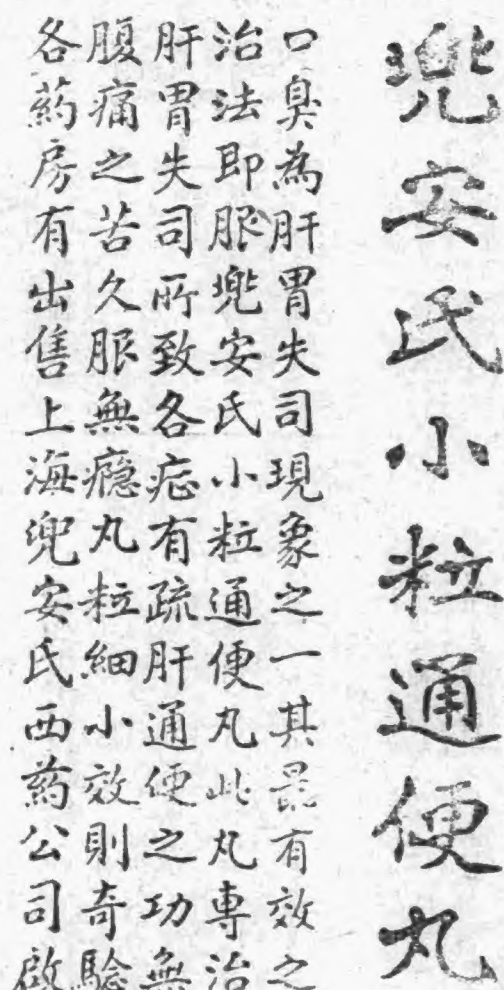 兜安氏小粒通便丸
口臭為肝胃失司現象之一其最有效之
治法即服兜安氏小粒通便丸此丸專治
肝胃失司所致各症有疏肝通便之功無
腹痛之苦久服無癮丸粒細小效則奇驗
各藥房有出售上海兜安氏西藥公司啟